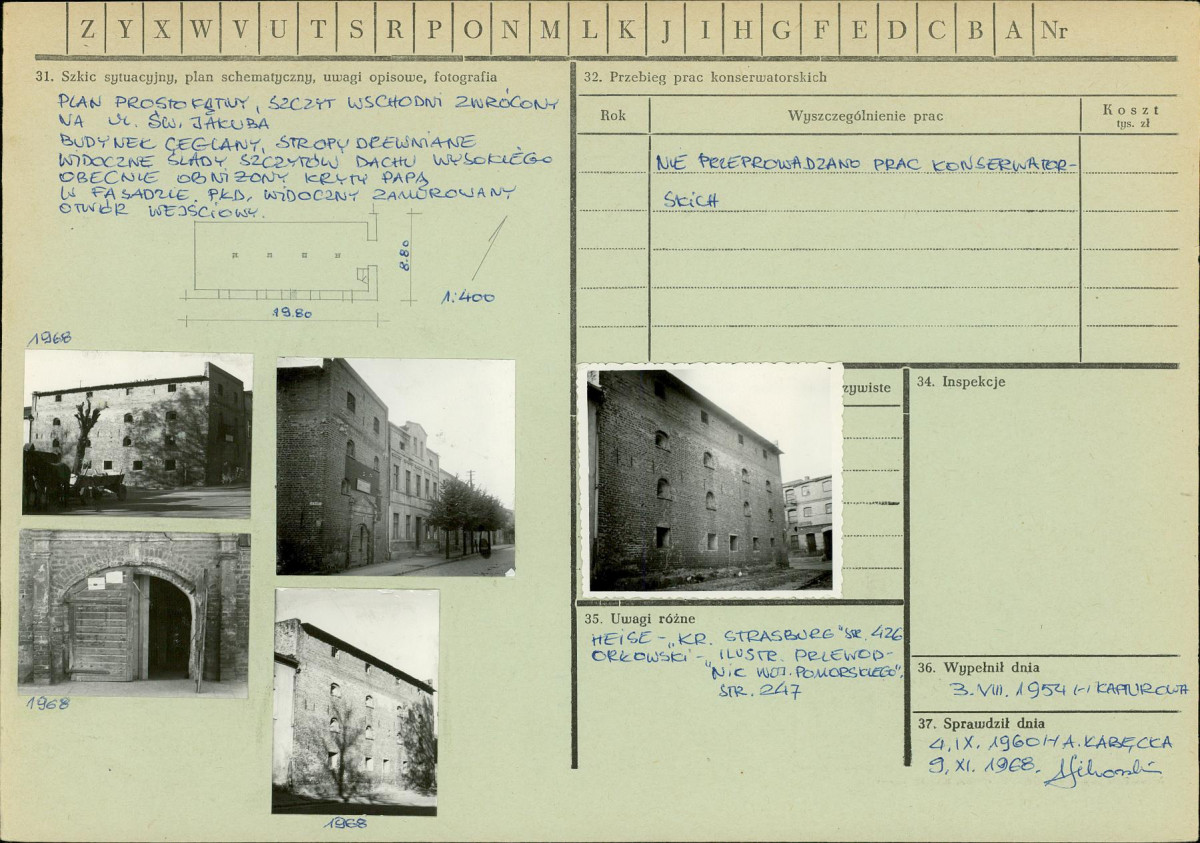 Z Y X W V U T S R P O N M L K J I H G F E D C B A Nr
31. Szkic sytuacyjny, plan schematyczny, uwagi opisowe, fotografia
PLAN PROSTOKĄTNY, SZCZYT WSCHODNI ZWRÓCONY
NA UL. ŚW. JAKUBA
BUDYNEK CEGLANY, STROPY DREWNIANE
WIDOCZNE ŚLADY SZCZYTÓW DACHU WYSOKIEGO
OBECNIE OBNIŻONY KRYTY PAPĄ
W FASADZIE PŁD. WIDOCZNY ZAMUROWANY
OTWÓR WEJŚCIOWY.
8.80
19.80
1:400
1968
1968
1968
32. Przebieg prac konserwatorskich
Rok
Wyszczególnienie prac
Koszt
tys. zł
NIE PRZEPROWADZANO PRAC KONSERWATOR-
SKICH
zywiste
34. Inspekcje
35. Uwagi różne
HEISE - „KR. STRASBURG" STR. 426
ORŁOWSKI - „ILUSTR. PRZEWOD-
NIK WOJ. POMORSKIEGO".
STR. 247
36. Wypełnił dnia
3. VIII. 1954 (-) KAPTUROWA
37. Sprawdził dnia
4. IX. 1960 (-) A. KABĘCKA
9. XI. 1968.